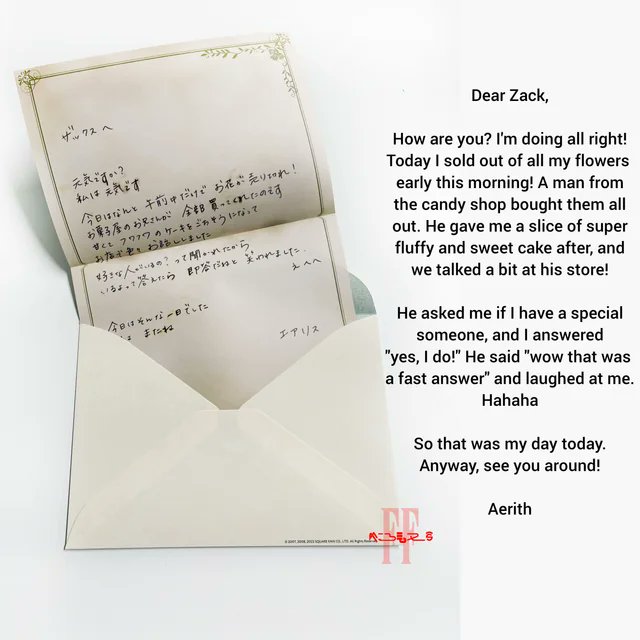 ザックスへ
元気ですか?
私は元気です
今日はなんと 午前中だけで お花が売り切れ!
お菓子屋のお兄さんが 全部買ってくれたのです
甘くて フワフワのケーキをごちそうになって
お店で お話ししました
好きな人がいるの?って聞かれたから
いるよって答えたら 即答だねと笑われました
えへへ
今日はそんな一日でした
またね
エアリス
SQUARE ENIX CO., LTD. All Rights Reserved.
Dear Zack,
How are you? I'm doing all right!
Today I sold out of all my flowers
early this morning! A man from
the candy shop bought them all
out. He gave me a slice of super
fluffy and sweet cake after, and
we talked a bit at his store!
He asked me if I have a special
someone, and I answered
"yes, I do!" He said "wow that was
a fast answer" and laughed at me.
Hahaha
So that was my day today.
Anyway, see you around!
Aerith
FF